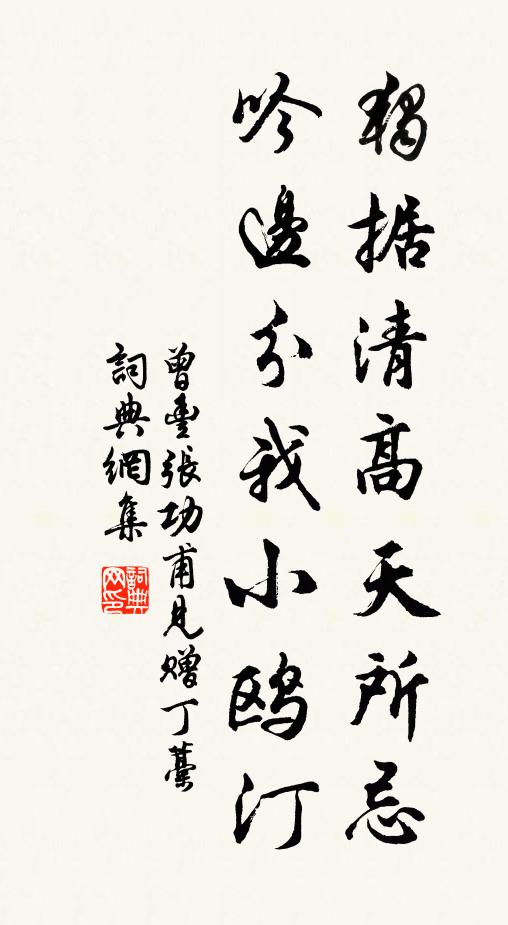 獨据清高天所忌
吟邊分我小鷗汀
曾豐張功甫見贈丁藁
詞典網集
詞典網印